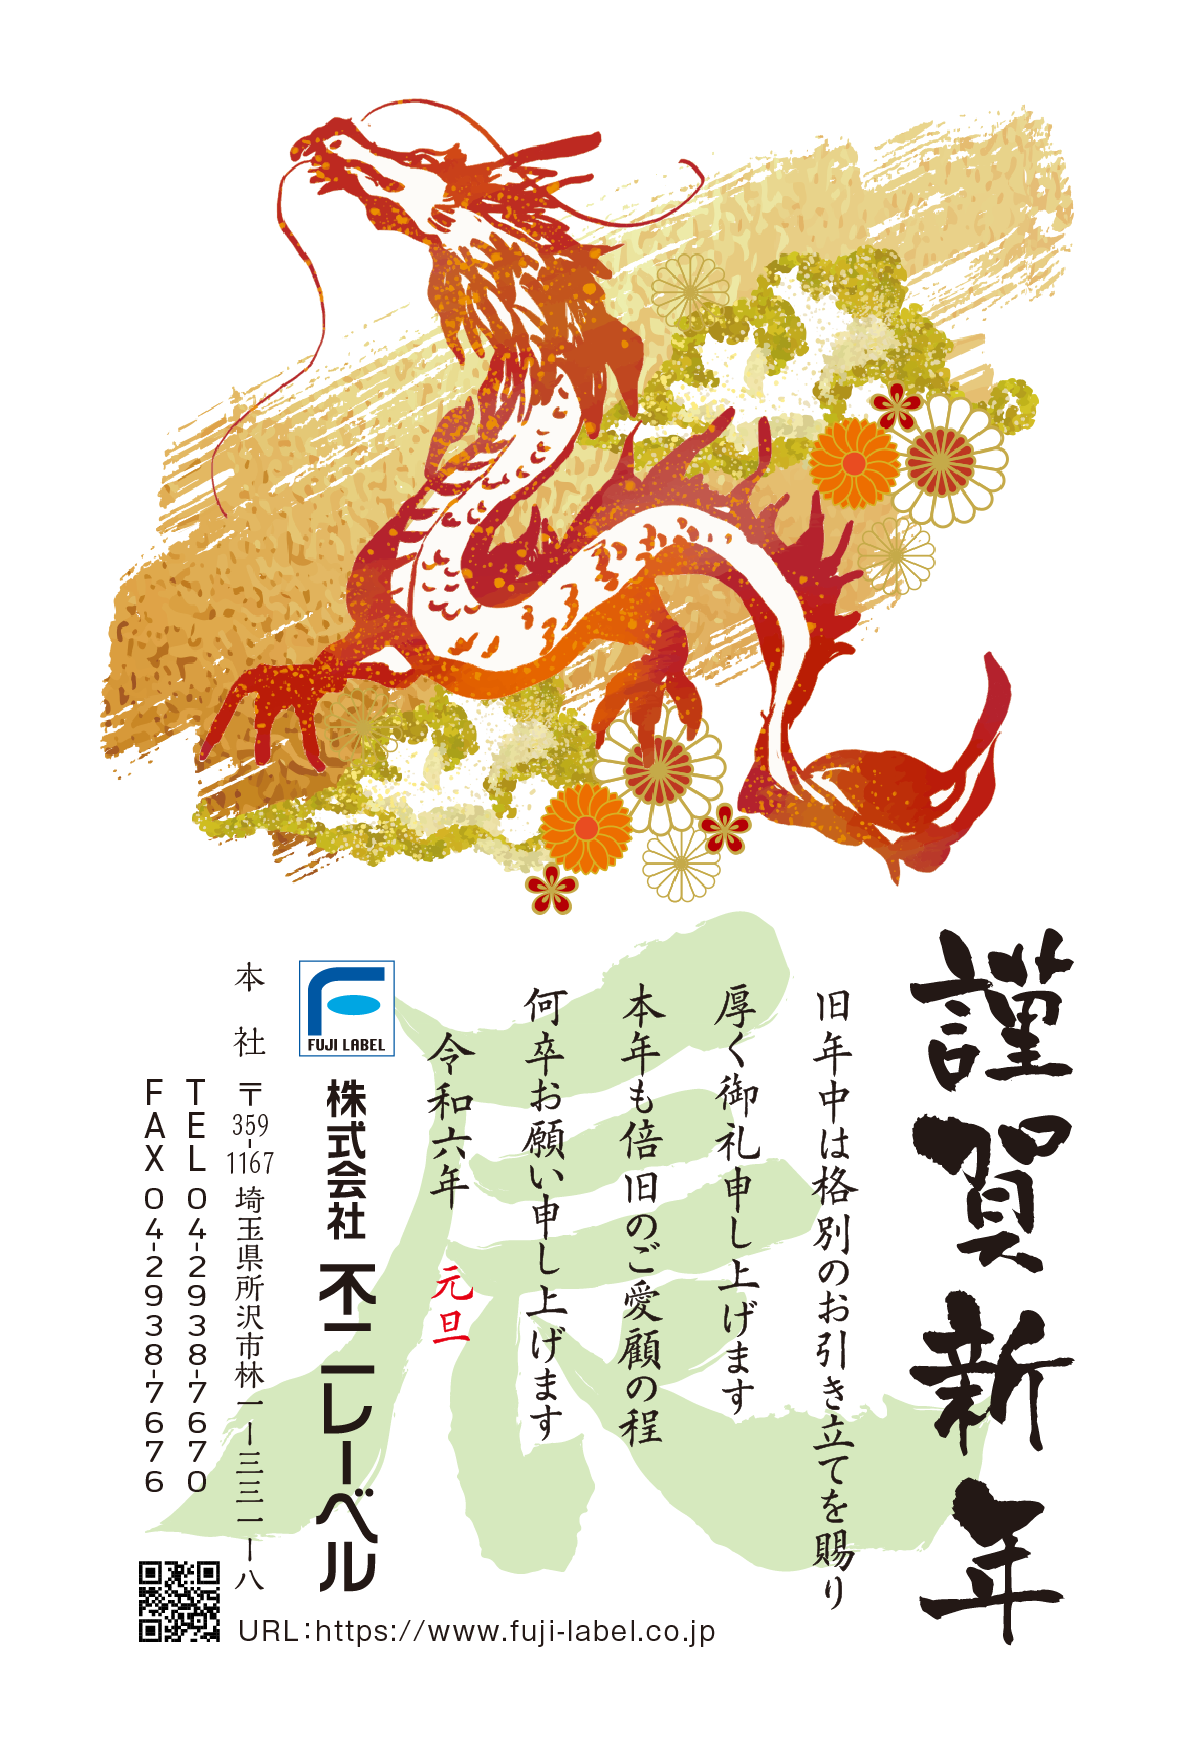 謹賀新年
旧年中は格別のお引き立てを賜り
厚く御礼申し上げます
本年も倍旧のご愛顧の程
何卒お願い申し上げます
令和六年 元旦
辰
FUJI LABEL
株式会社 不二レーベル
本社 〒359-1167 埼玉県所沢市林一ー三三一ー八
TEL 04-2938-7670
FAX 04-2938-7676
URL:https://www.fuji-label.co.jp